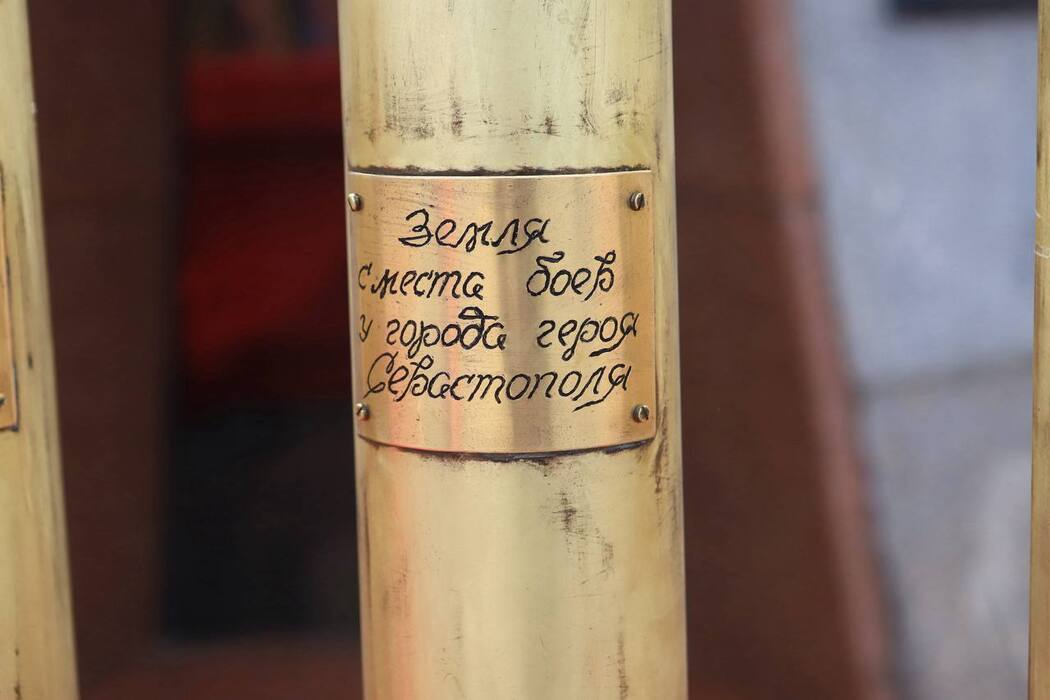 Земля
с места боев
у города героя
Севастополя